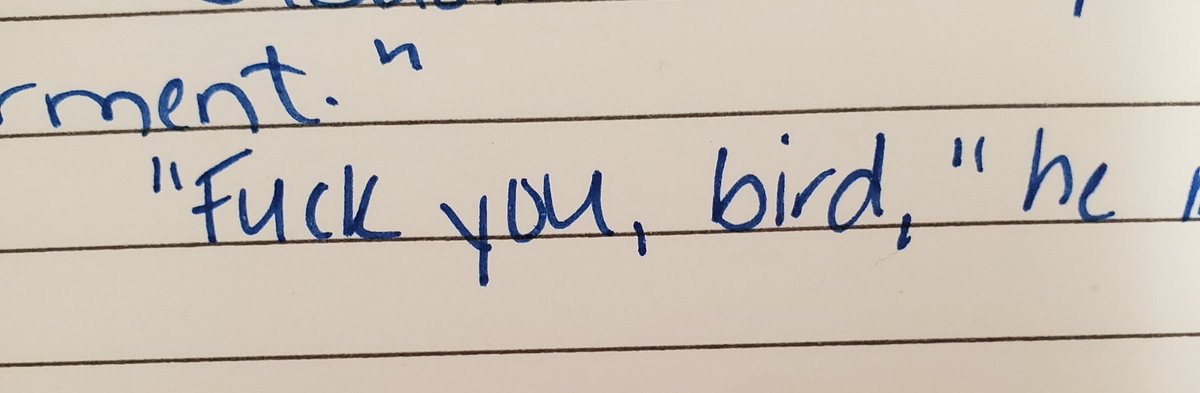 rment."
"Fuck you, bird," he